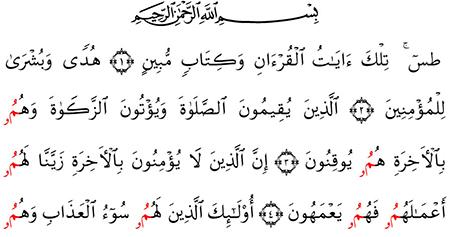 بِسْمِ اللَّهِ الرَّحْمَٰنِ الرَّحِيمِ
طسٓ ۚ تِلْكَ ءَايَٰتُ الْقُرْءَانِ وَكِتَابٍ مُّبِينٍ ﴿١﴾ هُدًى وَبُشْرَىٰ
لِلْمُؤْمِنِينَ ﴿٢﴾ الَّذِينَ يُقِيمُونَ الصَّلَوٰةَ وَيُؤْتُونَ الزَّكَوٰةَ وَهُمُۥ
بِالْأَخِرَةِ هُمُۥ يُوقِنُونَ ﴿٣﴾ إِنَّ الَّذِينَ لَا يُؤْمِنُونَ بِالْأَخِرَةِ زَيَّنَّا لَهُمُۥ
أَعْمَٰلَهُمُۥ فَهُمُۥ يَعْمَهُونَ ﴿٤﴾ أُوْلَٰٓئِكَ الَّذِينَ لَهُمُۥ سُوٓءُ الْعَذَابِ وَهُمُۥ